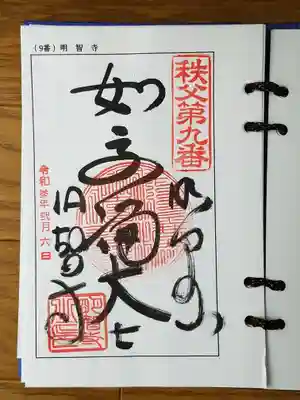 (9番) 明智寺
秩父第九番
如意輪大士
明智寺
令和参年弐月六日